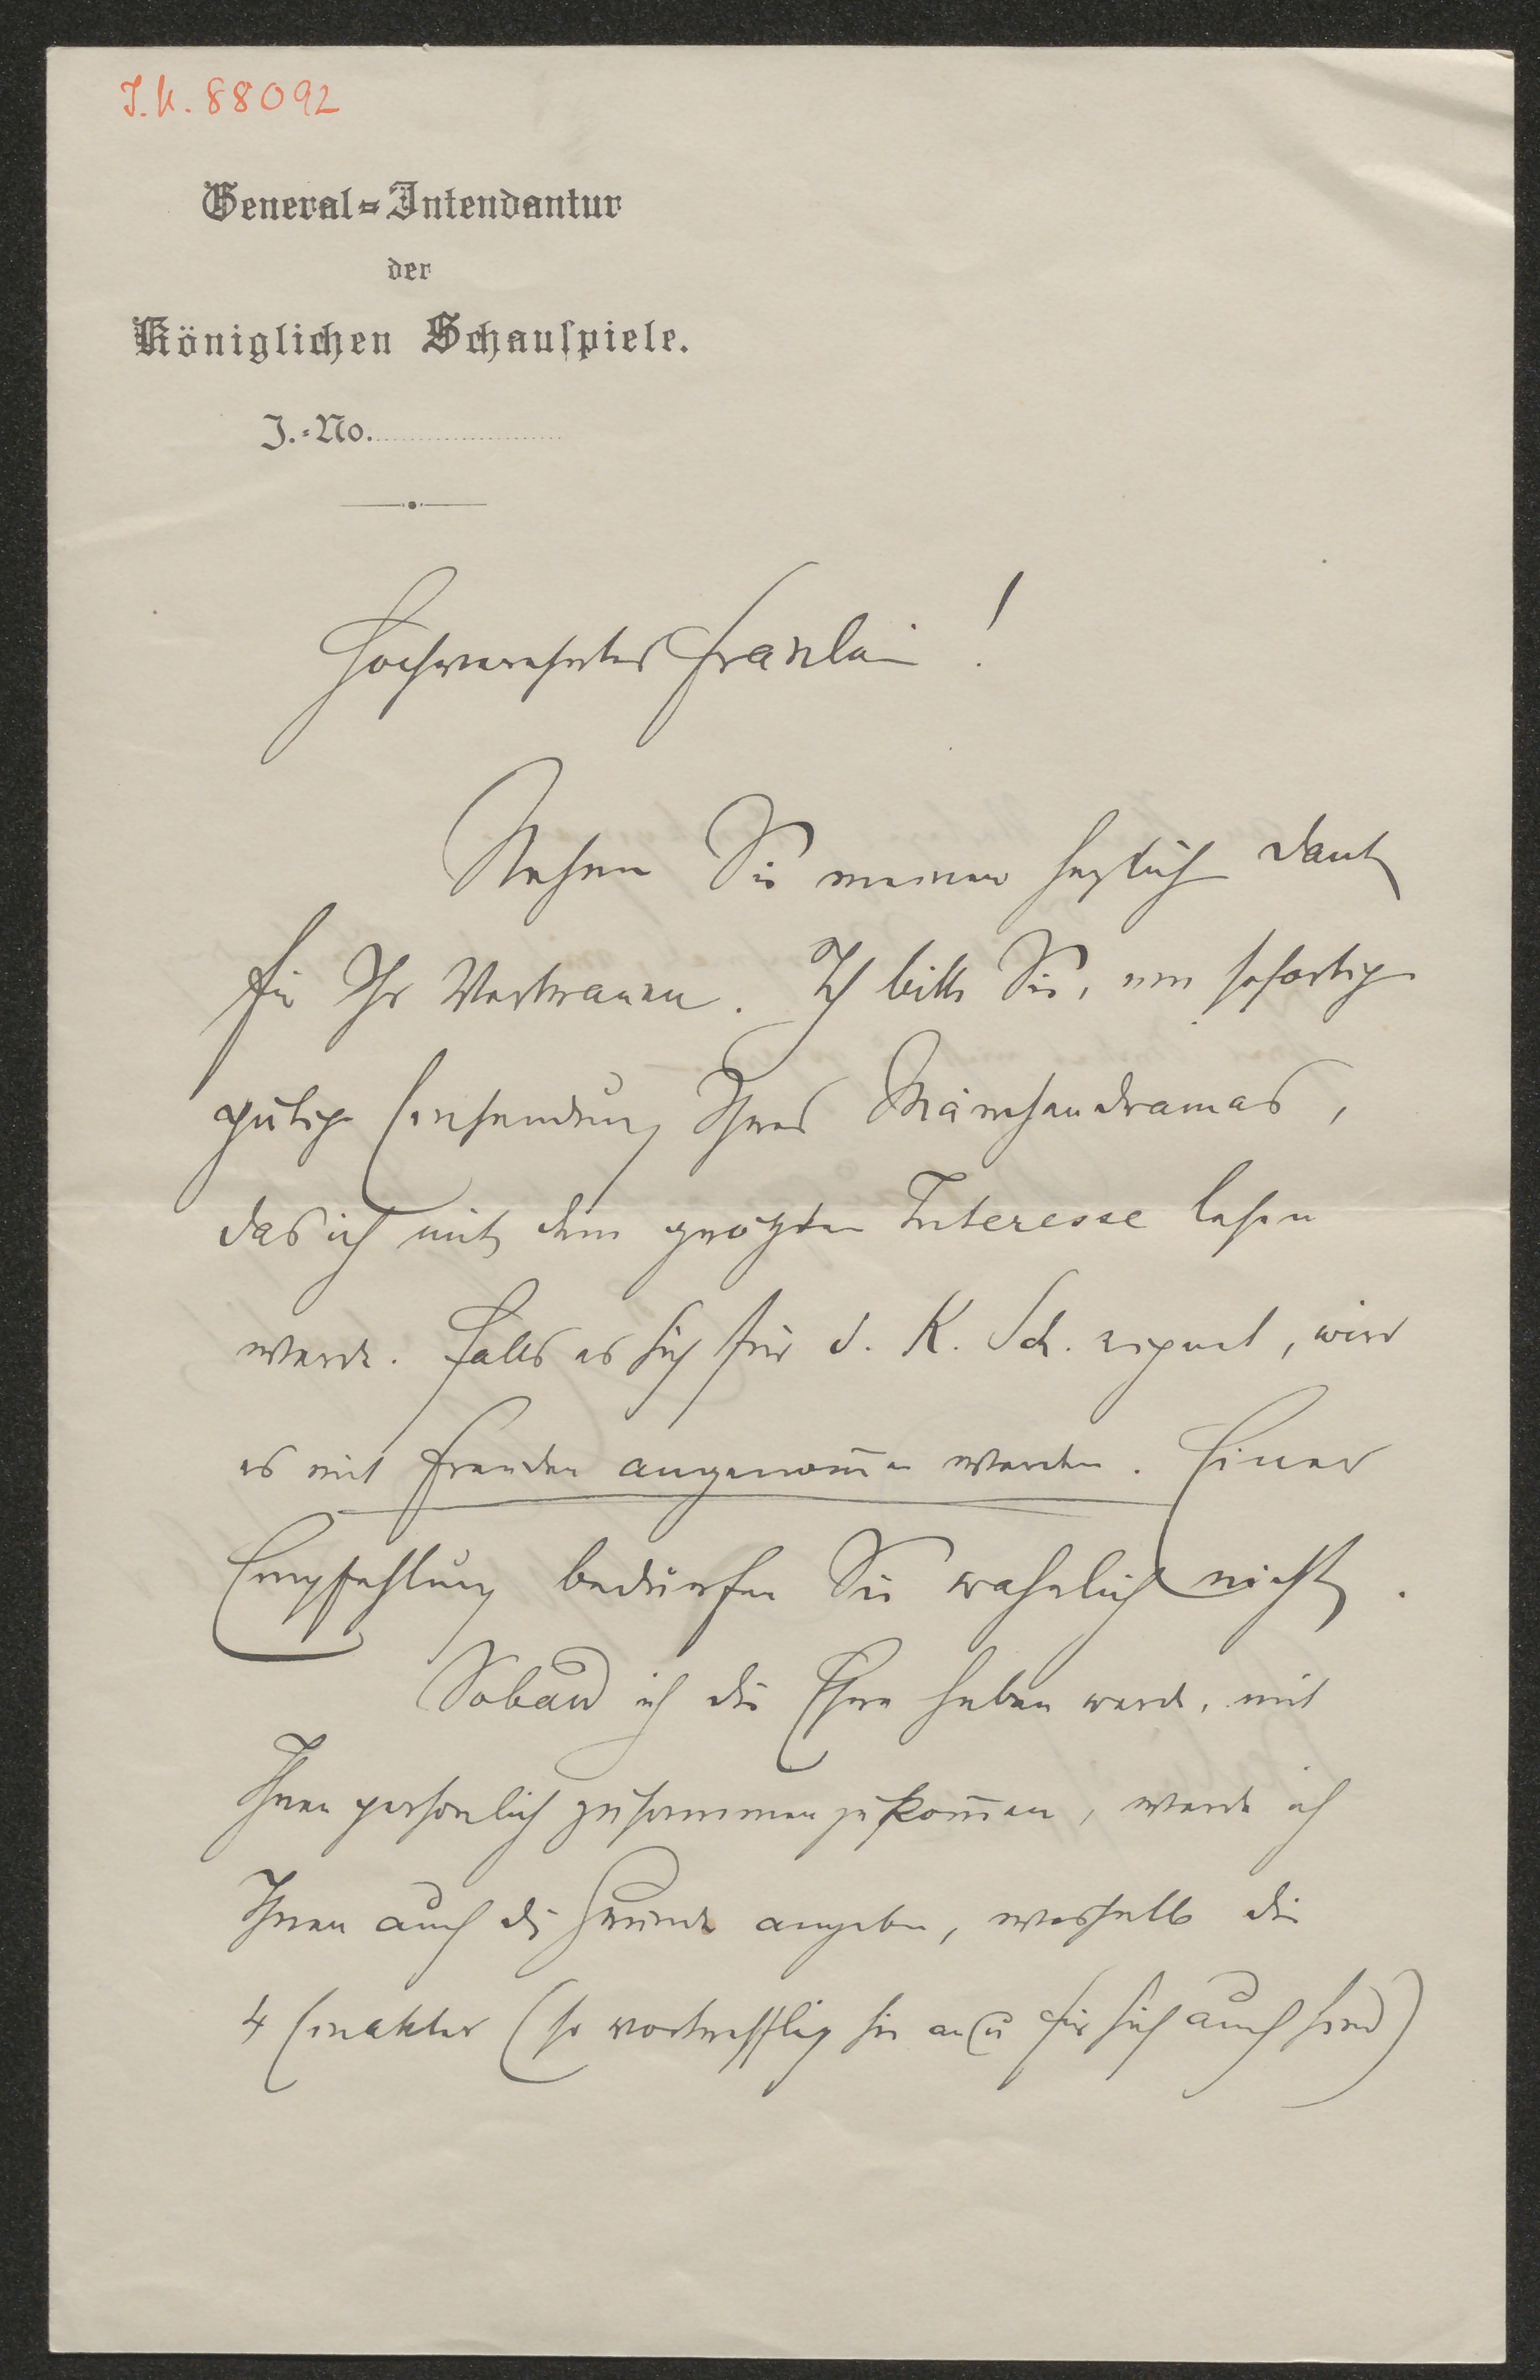 J.N. 88092
General=Intendantur
der
Königlichen Schauspiele.
J.=No.
Hochverehrtes Fräulein!
Nehmen Sie meinen herzlich Dank
für Ihr Vertrauen. Ich bitte Sie, um sofortige
gütige Einsendung Ihres Märchendramas,
das ich mit dem größten Interesse lesen
werde. Falls es sich für d. K. Sch. eignet, wird
es mit Freuden angenom̅en werden. Einer
Empfehlung bedürfen Sie wahrlich nicht.
Sobald ich die Ehre haben werde, mit
Ihnen persönlich zusammenzukom̅en, werde ich
Ihnen auch die Gründe angeben, weshalb die
4 Einakter (so vortrefflich sie an u für sich auch sind)